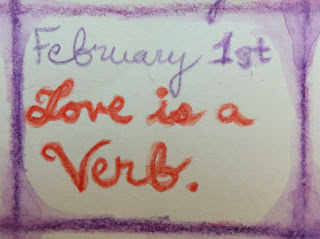 February 1st
Love is a
Verb.